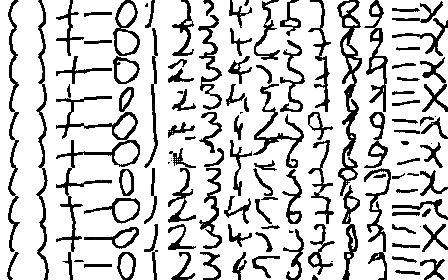 ( ) + - 0 1 2 3 4 5 5 7 8 9 = x
( ) + - 0 1 2 3 4 5 5 7 8 9 = x
( ) + - 0 1 2 3 4 5 5 7 8 9 = x
( ) + - 0 1 2 3 4 5 5 7 8 9 = x
( ) + - 0 1 2 3 4 5 9 8 9 = x
( ) + - 0 1 3 4 5 6 7 8 9 = x
( ) + - 0 1 2 3 4 5 3 7 8 9 = x
( ) + - 0 1 2 3 4 5 6 7 8 9 = x
( ) + - 0 1 2 3 4 5 3 7 8 9 = x
( ) + - 0 1 2 3 4 5 3 9 8 9 = x